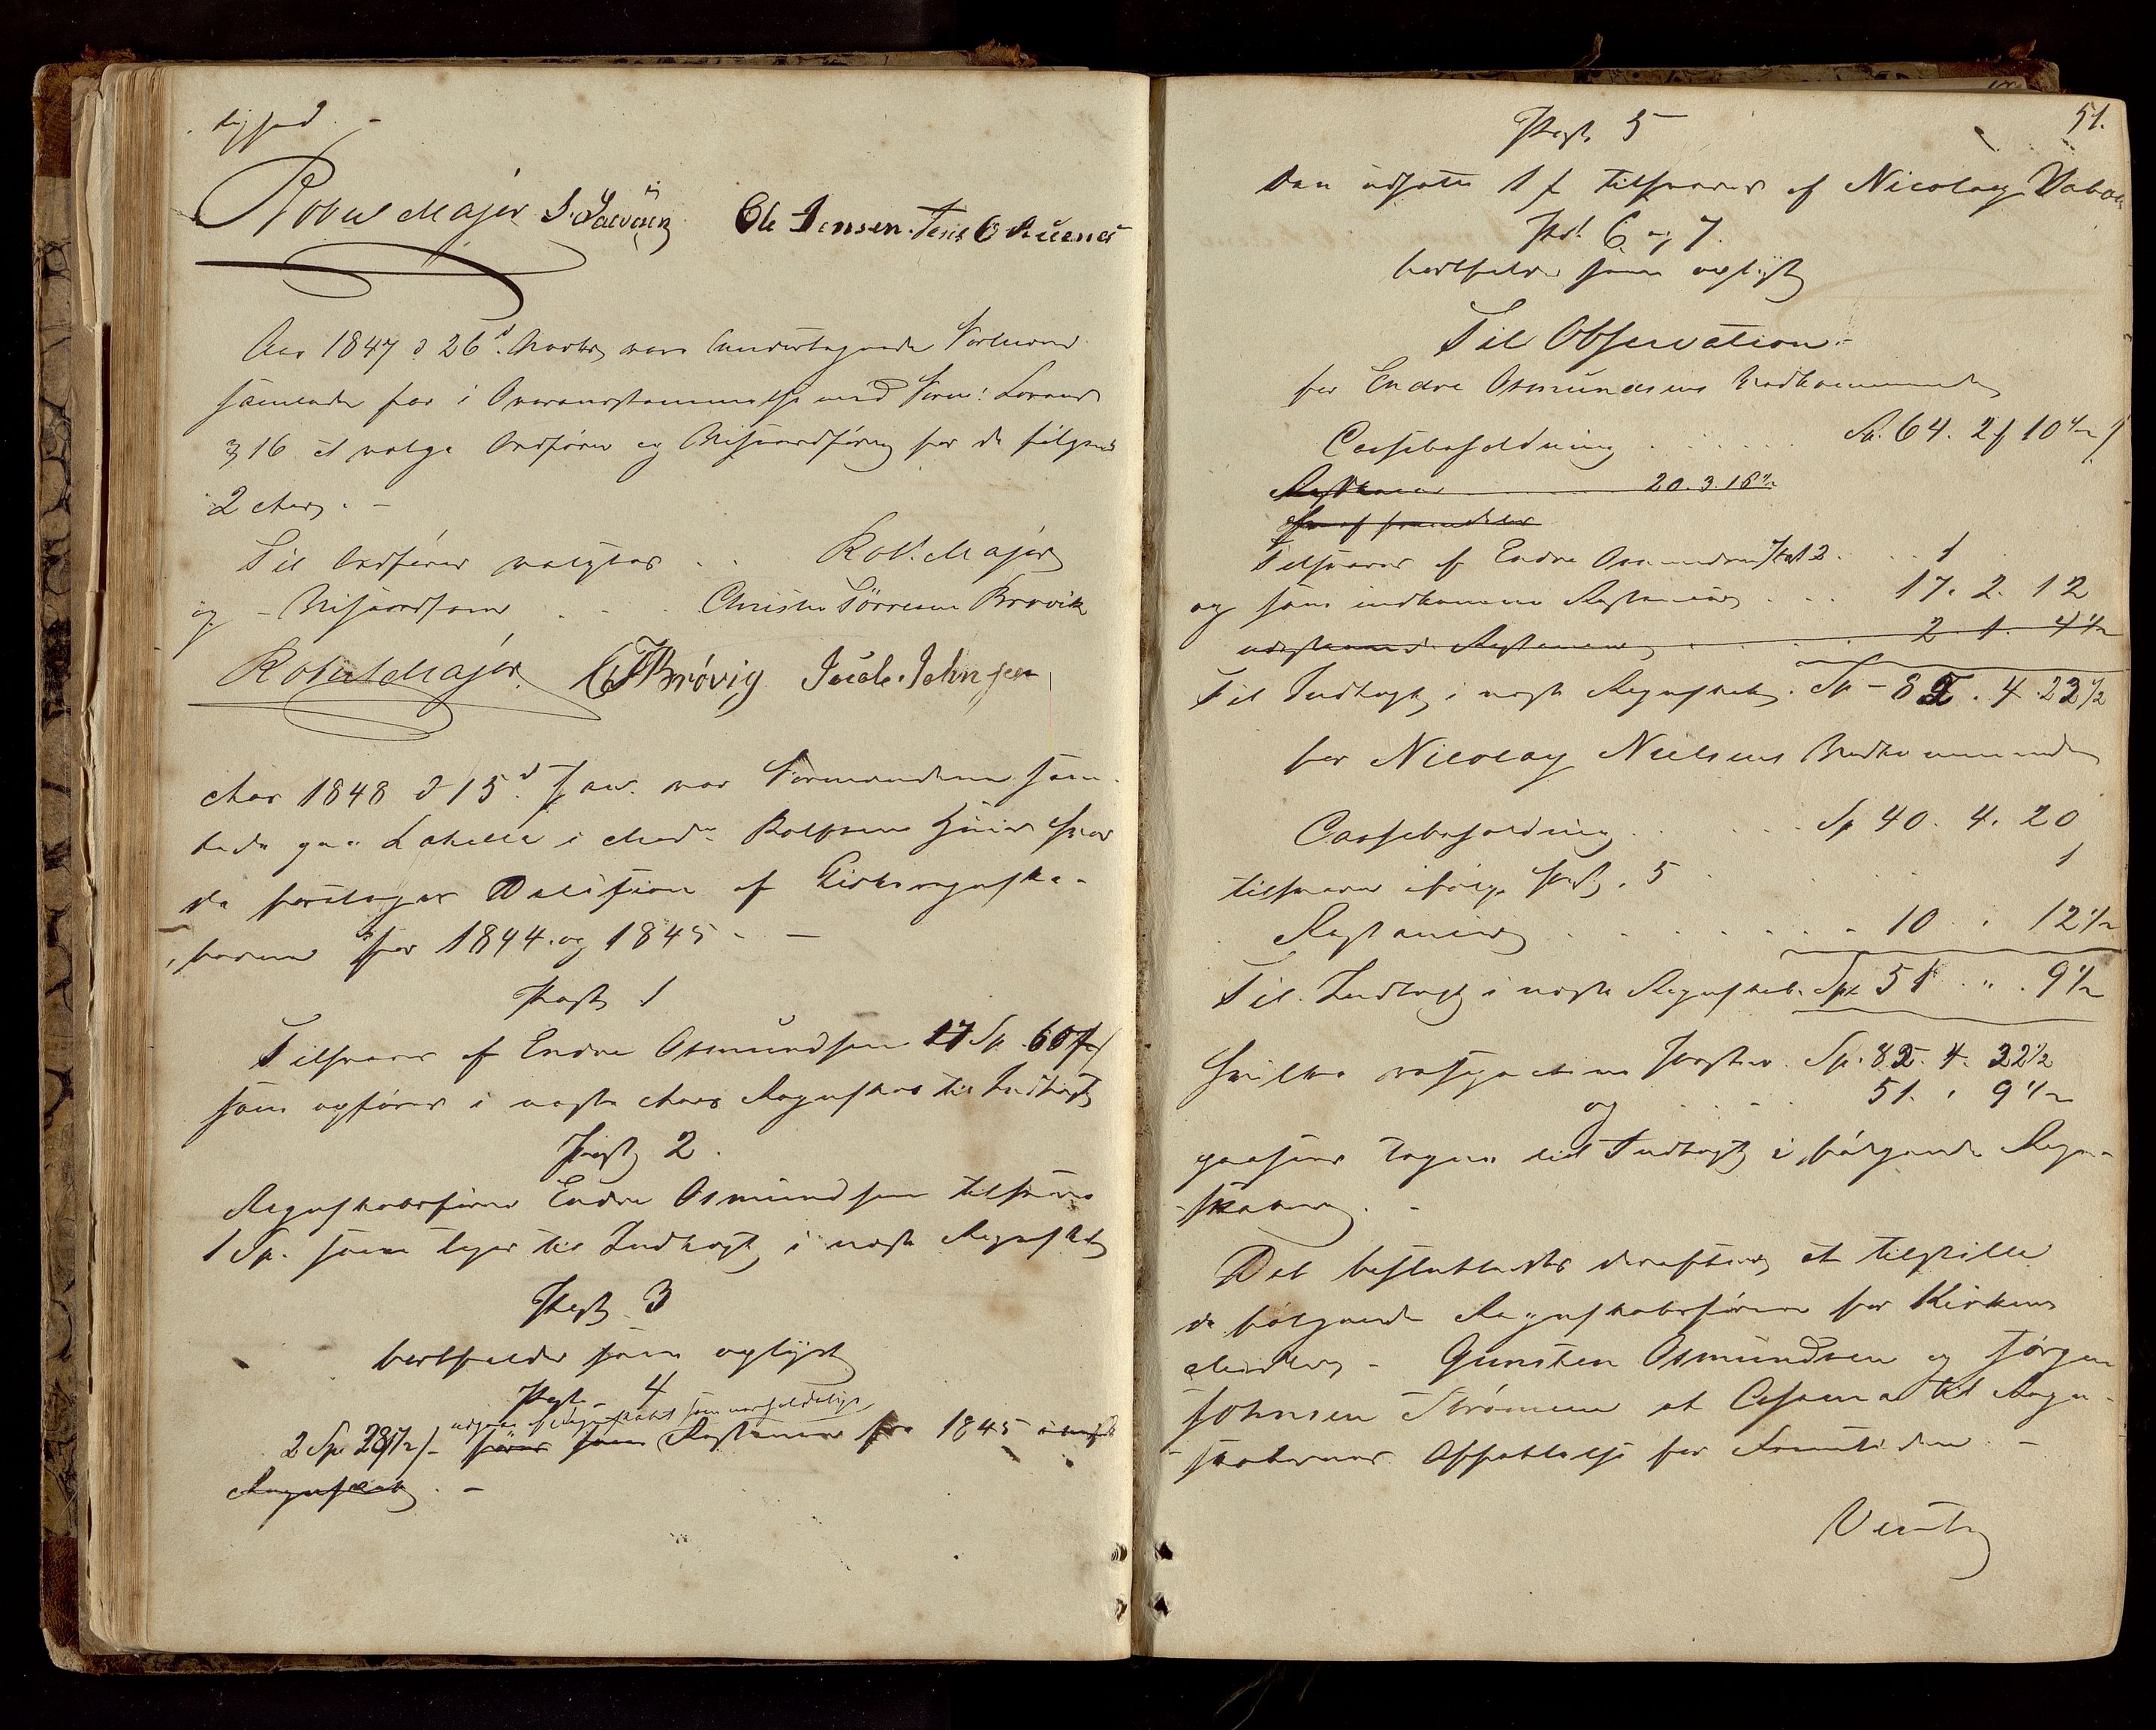 Robert Majer S. Ole Jensen. Jens O
Aar 1847 d 26d. vare undertegnede Formænd
samlede for i Overensstemmelse med Form: Lovens
§ 16 at vælge Ordfører og Viseordfører for de følgende
2 Aar. -
Til Ordfører valgtes . . Robt. Majer
og - Viseordfører . . . Christen Tørresen Brøvik
Robert Majer. CTBrøvig Jacob Johnsen
Aar 1848 d 15d Jan. var Formændene sam-
lede paa i Mads Huus hvor
da foretoges Desision af Kirkeregnska-
berne for 1844. og 1845. -
Post 1
Tilsvares af Endre Osmundsen 17 Sp. 60 s
som opføres i næste Aars Regnskab til Indtægt
Post 2.
Regnskabsfører Endre Osmundsen tilsvarer
1 Sp. som tages til Indtægt i næste Regnskab
Post 3
bortfalder som oplyst
Post. 4
udgaar af Regnskabet som
2 Sp 28 1/2 s - føres som Restancer fra 1845 i næste
Regnskab. -
51.
Post 5
Den udsatte 1 s tilsvares af Nicolay
Post. 6 og 7.
bortfalder som oplyst
Til Observation.
for Endre Osmundsens Vedkommende
Cassebeholdning . . . Sp. 64. 2 s 10 1/2 s
Restancer . . . 20. 3. 16 1/2
Tilsvares af Endre Osmundsen Post 2 . . 1
og som indkomne Restancer . . . 17. 2. 12
udestaaende Restancer . . . 2. 1. 4 1/2
Til Indtægt i næste Regnskab. Sp - 82. 4. 22 1/2
for Nicolay Nielsens Vedkommende
Cassebeholdning . . . Sp 40. 4. 20
tilsvares ifølge Post. 5 . . . 1
Restancer . . . 10 " 12 1/2
Til Indtægt i næste Regnskab. Sp 51 " 9 1/2
hvilke Poster. Sp. 82. 4. 22 1/2
og . . . 51. " 9 1/2
tages til Indtægt i følgende Regn-
skaber. -
Det besluttedes derefter at tilstille
de følgende Regnskabsførere for Kirkens
Midler - Gunsten Osmundsen og Jørgen
Johnsen Strømmen et til Regn-
skabernes Affattelse for Fremtiden. -